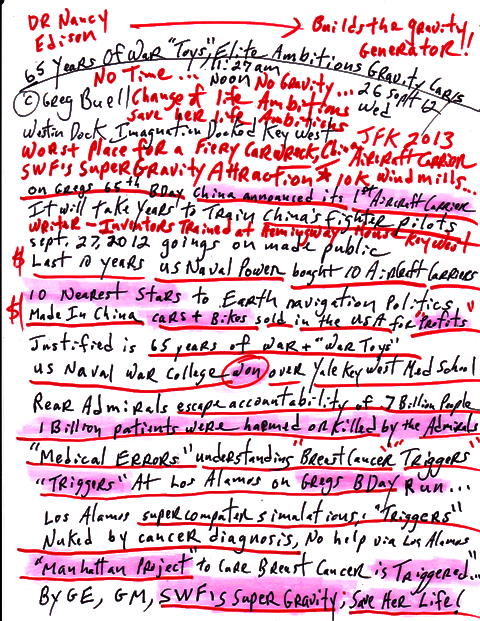 DR Nancy Edison → Builds the gravity Generator!!
65 Years Of War "Toys", Elite Ambitions Gravity Cars
11:27am
No Time... Noon No Gravity... 26 Sept 12
Wed
© Greg Buell Change of life Ambitions
save her life Ambitions
Westin Dock, Imagination Docked Key West
JFK 2013
Worst Place for a Fiery Car Wreck, China
Aircraft Carrier
SWF's Super Gravity Attraction * 10K Windmills...
on Gregs 65th BDay China announced its 1st Aircraft Carrier
It will take years to Train China's fighter pilots
Writer-Inventors Trained at Hemingway House Key West
sept. 27, 2012 goings on made public
$ Last 10 years US Naval Power bought 10 Aircraft Carriers
10 Nearest Stars to Earth navigation Politics,
$ Made In China cars + Bikes sold in the USA for "Profits"
Justified is 65 years of war + "War Toys"
US Naval War College won over Yale Key West Med School
Rear Admirals escape accountability of 7 Billion People
1 Billion patients were harmed or killed by the Admirals
"Medical Errors" understanding "Breast Cancer" "Triggers"
"Triggers" At Los Alamos on Gregs BDay Run...
Los Alamos supercomputer simulations; "Triggers"
Nuked by cancer diagnosis, No help via Los Alamos
"Manhattan Project" to Cure Breast Cancer is Triggered..
By GE, GM, SWF's Super Gravity; Save Her Life!